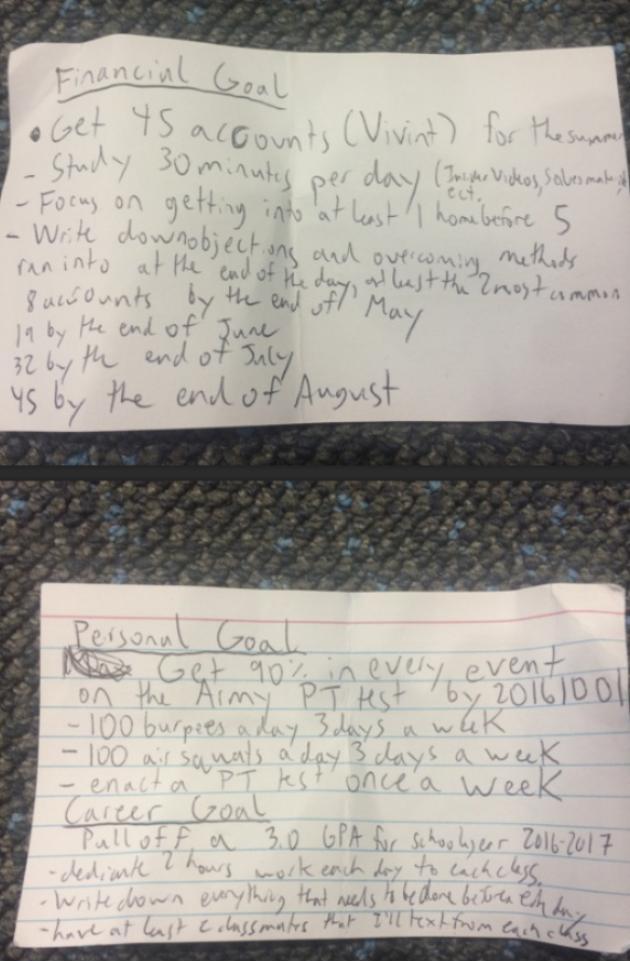 Financial Goal
• Get 45 accounts (Vivint) for the summer
- Study 30 minutes per day (Insider Videos, Salesmate,
ect.
- Focus on getting into at least 1 home before 5
- Write down objections and overcoming methods
ran into at the end of the day, at least the 2 most common
8 accounts by the end of May
19 by the end of June
32 by the end of July
45 by the end of August
Personal Goal
Get 90% in every event
on the Army PT test by 20161001
- 100 burpees a day 3 days a week
- 100 air squats a day 3 days a week
- enact a PT test once a week
Career Goal
Pull off a 3.0 GPA for school year 2016-2017
- dedicate 2 hours work each day to each class.
- Write down everything that needs to be done before each day
- have at least 2 classmates that I'll text from each class